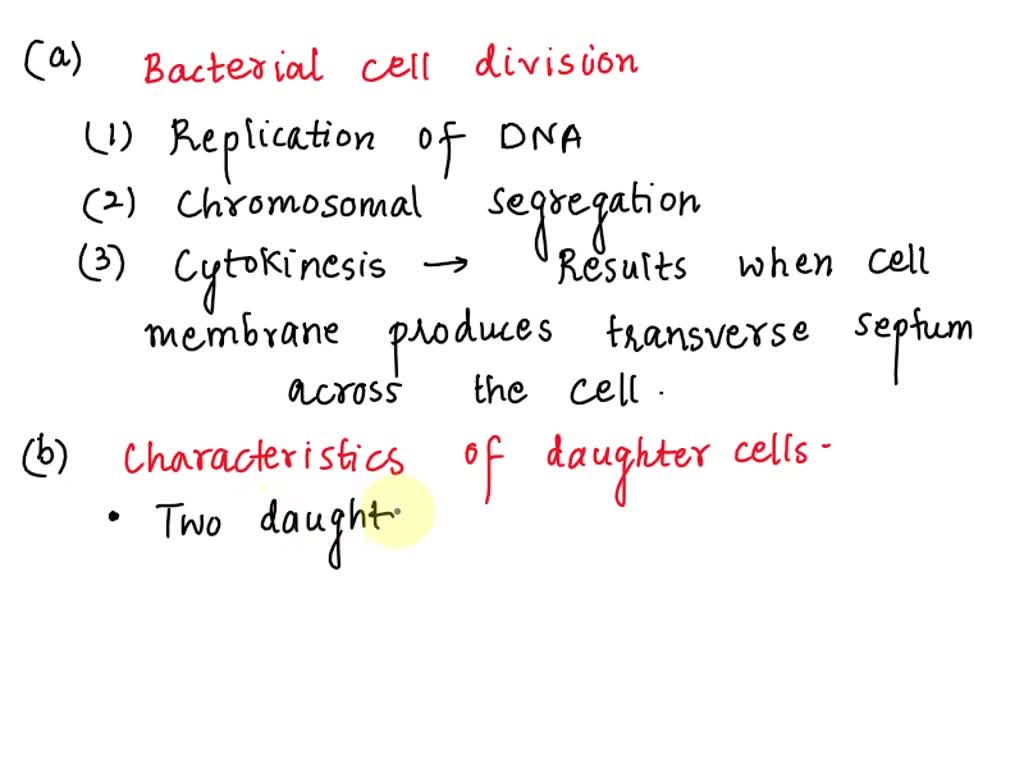 (a) Bacterial cell division
(1) Replication of DNA
(2) Chromosomal segregation
(3) Cytokinesis → Results when cell
membrane produces transverse septum
across the cell.
(b) Characteristics of daughter cells-
• Two daught